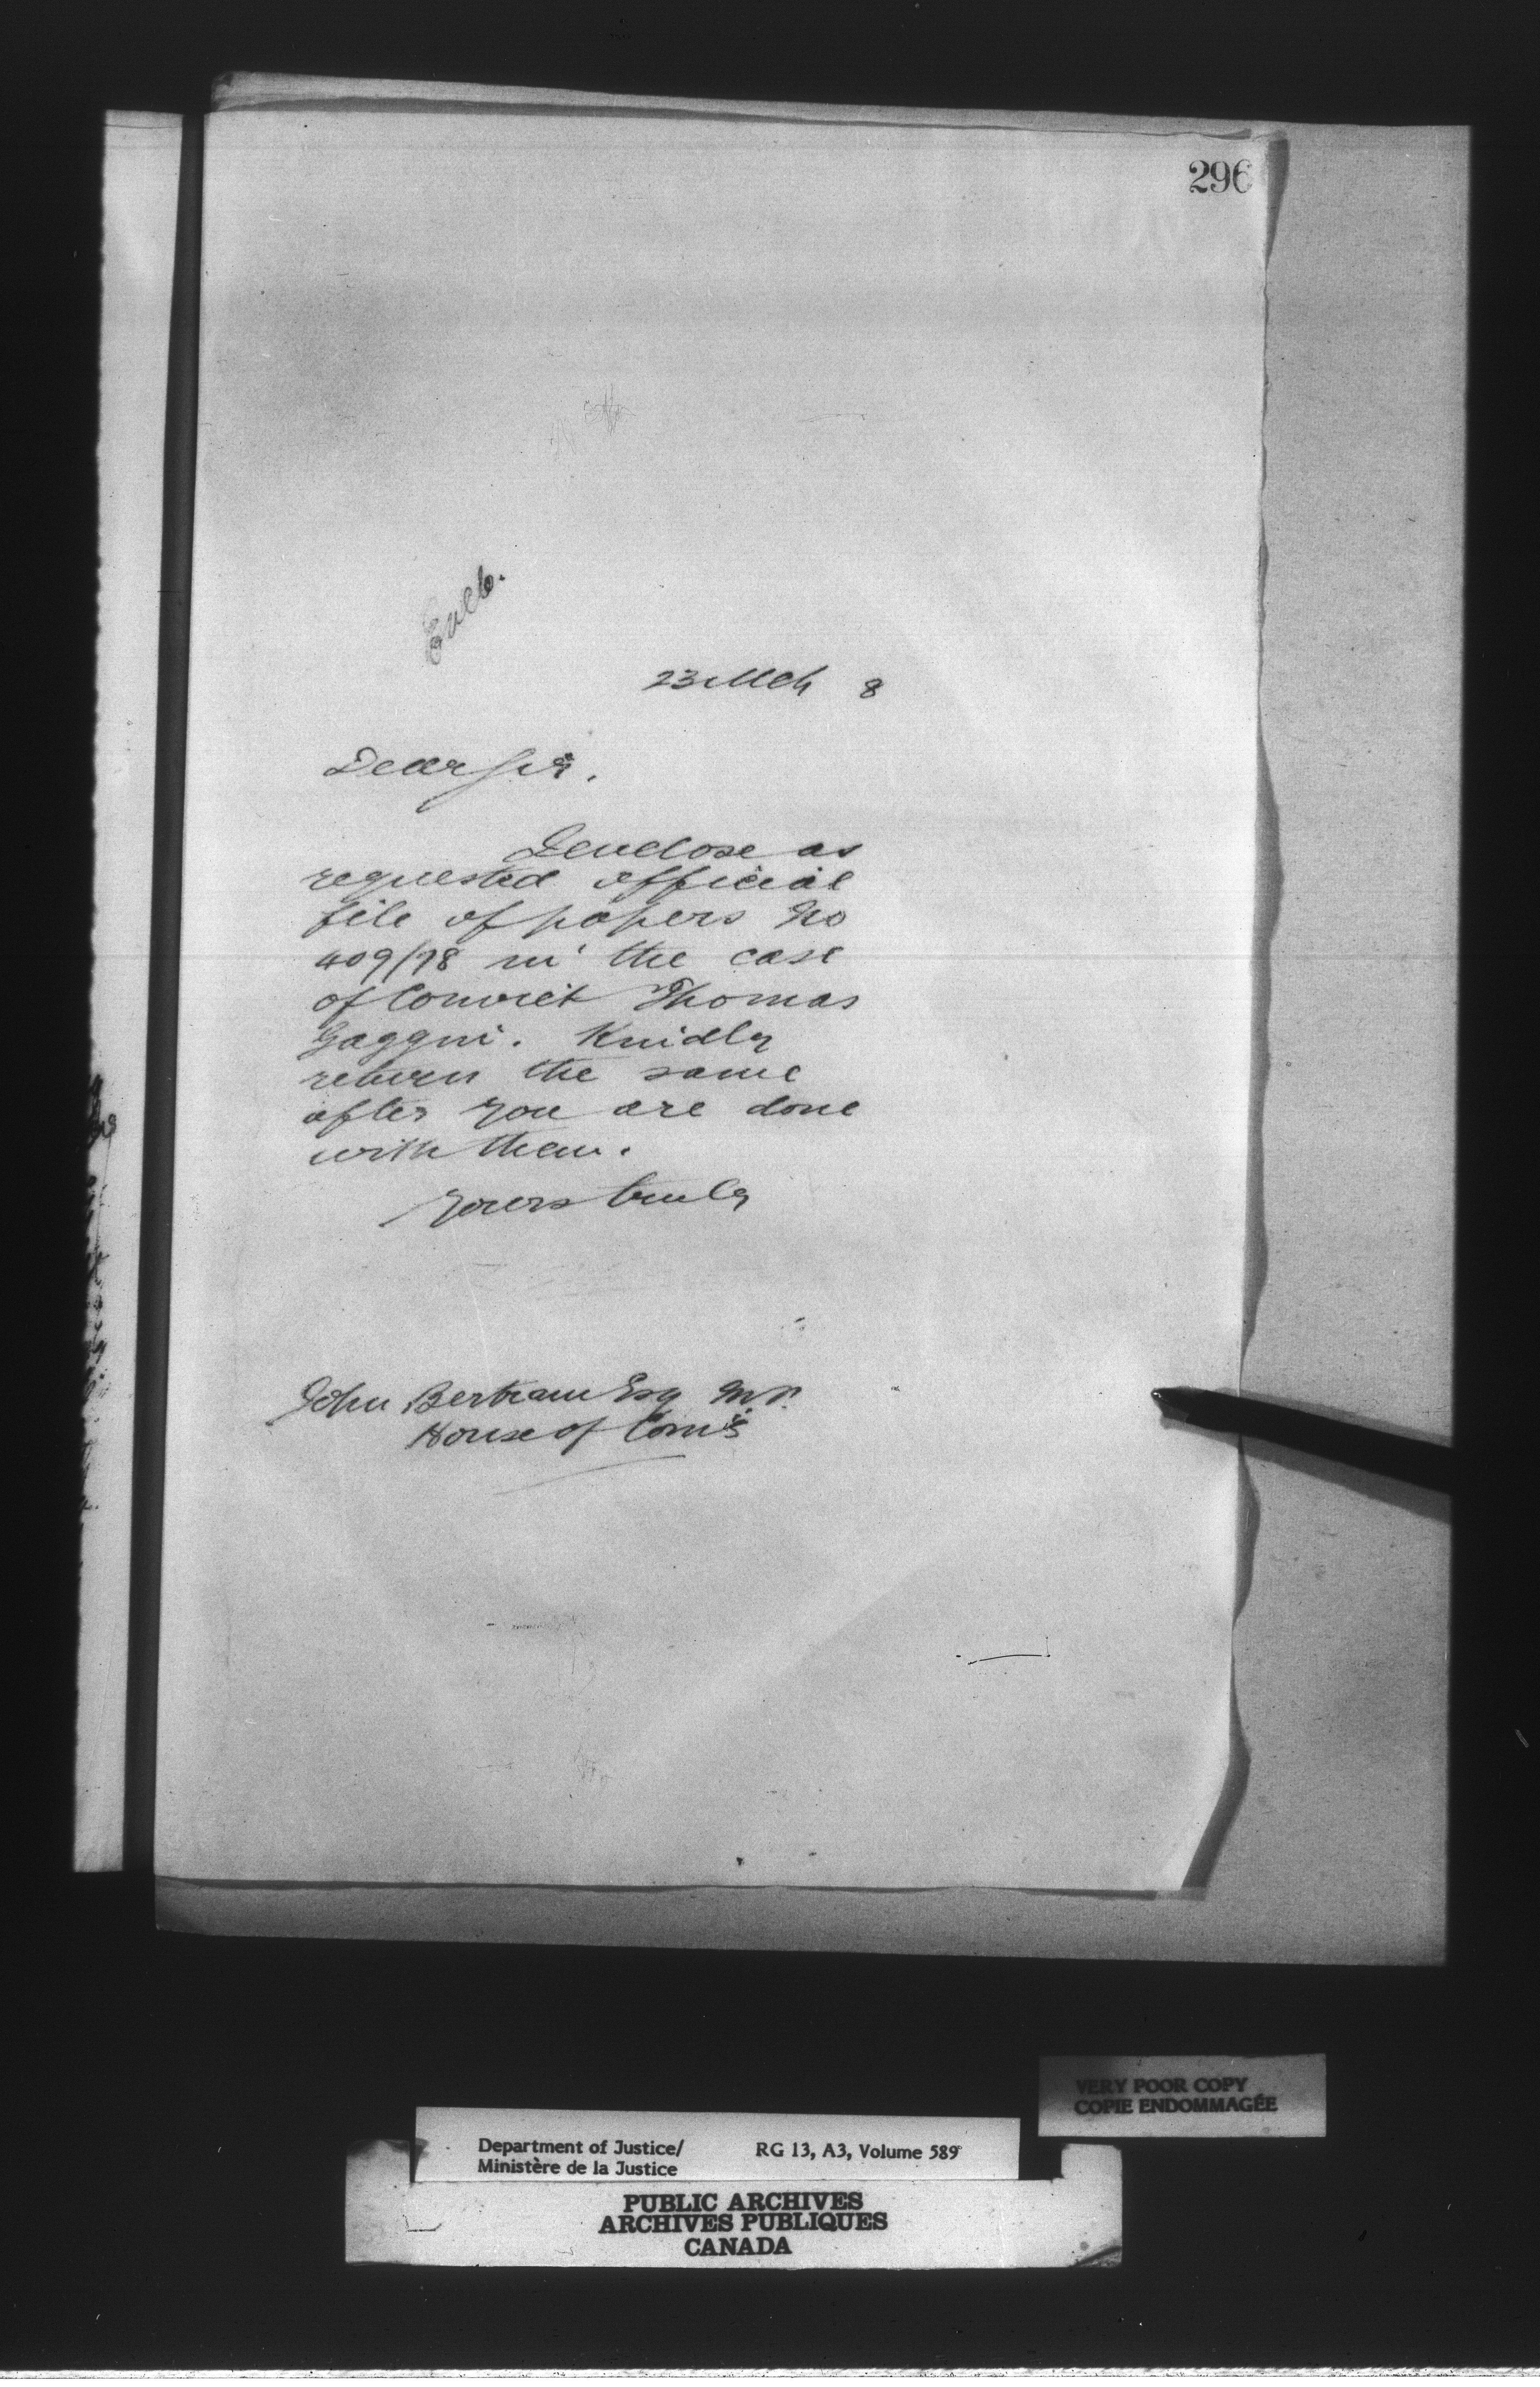 296
Encl.
23 Mch 8
Dear Sir.
I enclose as
requested official
file of papers No
409/78 in the case
of Convict Thomas
Gaggin. Kindly
return the same
after you are done
with them.
Yours truly
John Bertram Esq M.P.
House of Com's
VERY POOR COPY
COPIE ENDOMMAGÉE
Department of Justice/ RG 13, A3, Volume 589
Ministère de la Justice
PUBLIC ARCHIVES
ARCHIVES PUBLIQUES
CANADA